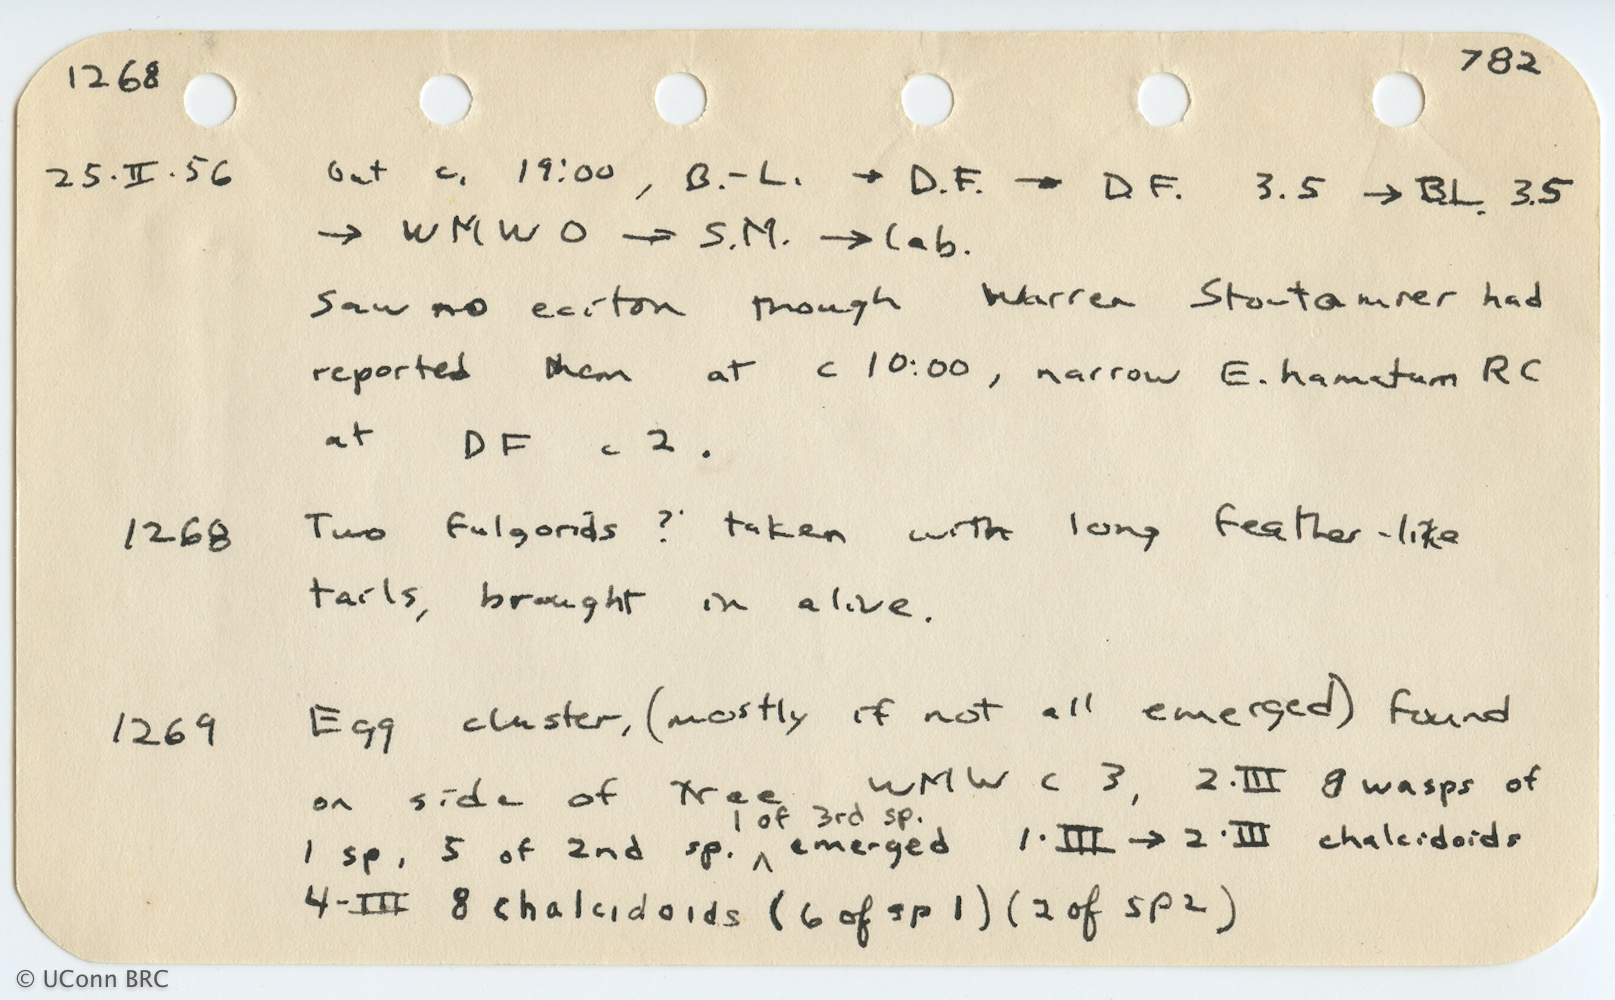 1268 782
25·II·56 Out c. 19:00, B.-L. → D.F. → D F. 3.5 → B.L. 3.5
→ W M W O → S.M. → lab.
Saw no eciton though Warren Stoutamirer had
reported them at c 10:00, narrow E. hamatum RC
at DF c 2.
1268 Two Fulgorids ? taken with long feather-like
tails, brought in alive.
1269 Egg cluster, (mostly if not all emerged) found
on side of tree WMW c 3, 2·III 8 wasps of
1 of 3rd sp.
1 sp, 5 of 2nd sp. ^ emerged 1·III → 2·III chalcidoids
4-III 8 chalcidoids (6 of sp 1) (2 of sp2)
© UConn BRC